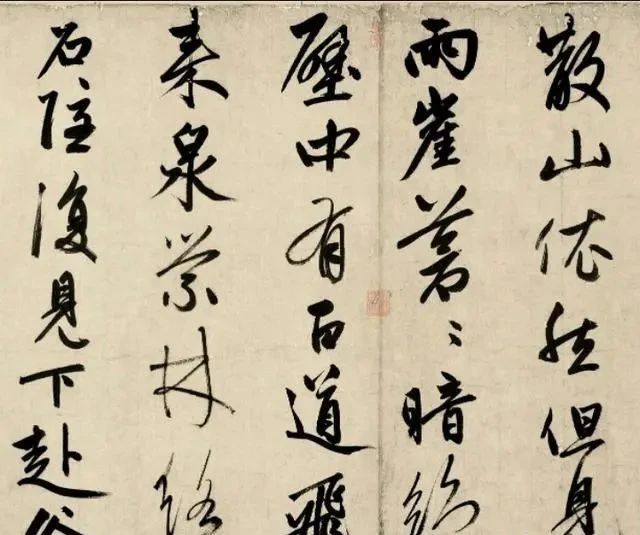 散山依然但見
兩崖蒼〻暗絕
中有百道飛
來泉縈林絡
石隱復見下赴谷